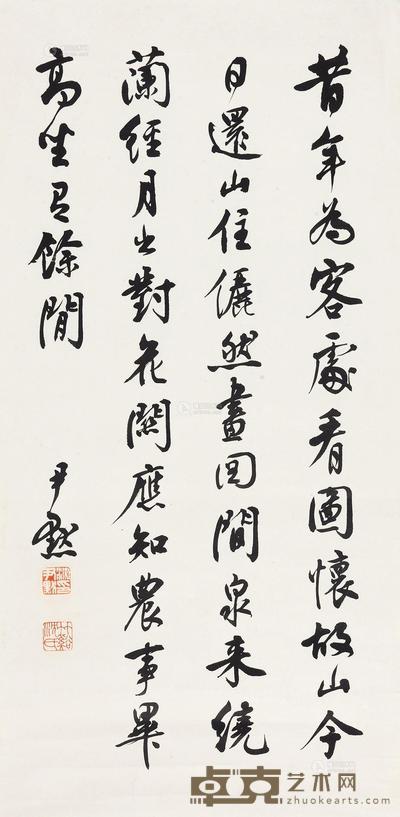 昔年為客處看圖懷故山今
日還山住儼然畫圖間泉来繞
蘭經月出對花關應知農事畢
高坐有餘閒
尹默
卓克艺术网
zhuokearts.com